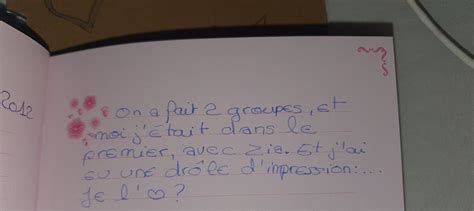 2012
on a fait 2 groupes, et
moi j'était dans le
premier, avec Zia. Et j'ai
eu une drôle d'impression:...
je l'♡?